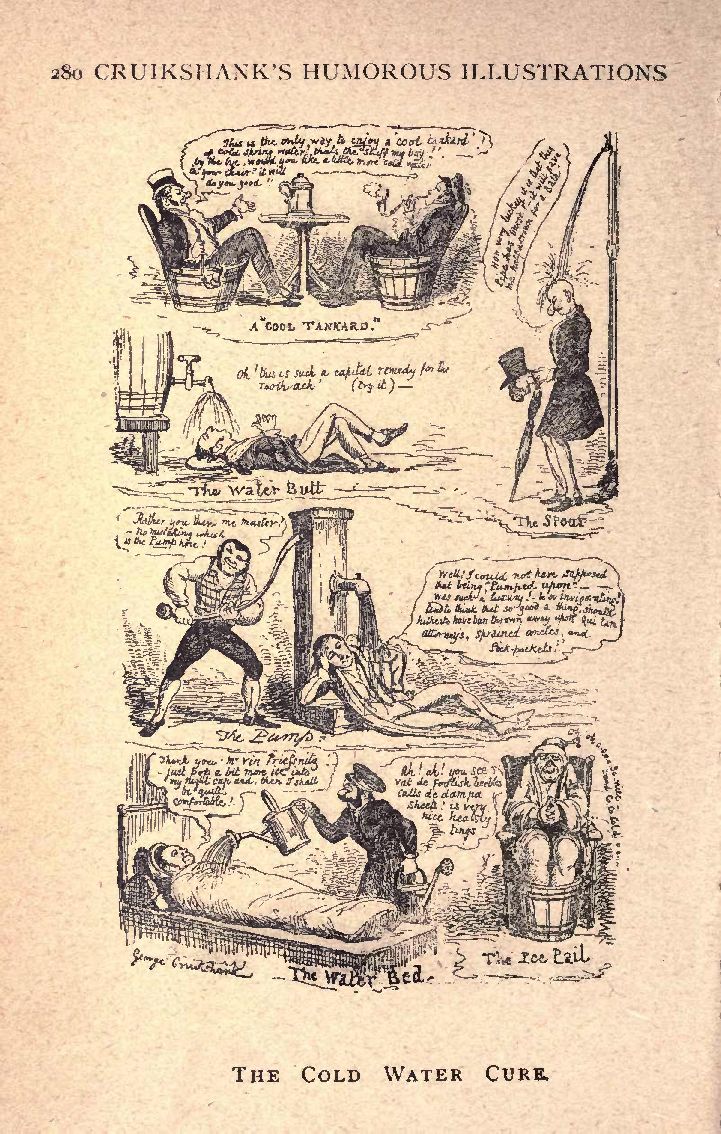 280 CRUIKSHANK'S HUMOROUS ILLUSTRATIONS
This is the only way to enjoy a 'cool tankard'!
of cold spring water! that's the "stuff my boy"!!
by the bye, would you like a little more cold water
in your chair? it will
do you good!!
A "COOL TANKARD."
Oh! this is such a capital remedy for the
Tooth-ach! (try it)—
The Water Butt
The Spout
Rather you then me master!
- no mistaking which
is the Pump here!
Well! I could not have supposed
that being "Pumped upon"—
was such a luxury!- & so invigorating!
that so good a thing, should
hitherto have been thrown away upon Qui tam
attorneys, sprained ancles, and
Pick-pockets!
The Pump.
Thank you Mr Vin Priessnitz
just pop a bit more ice into
my night cap and, then I shall
be "quite"
comfortable!
Ah! ah! you see
vat de foolish
calls de damp a
sheets! is very
nice healsty
tings
George Cruikshank
The Water Bed.
The Ice Pail
THE COLD WATER CURE.